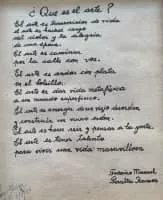 ¿Que es el arte?
El arte es transmision de vida
el arte es buscar
del dolor y la alegria
de una epoca.
El arte es caminar
por la calle con voz.
El arte es andar sin plata
en el bolsillo.
El arte es dar vida metafísica
a un mundo
El arte es emerger de un viejo derruido
y construir un nuevo orden.
El arte es hacer reir y pensar a la gente.
El arte es tener talento
para vivir una vida maravillosa
Federico Manuel
Peralta Ramos